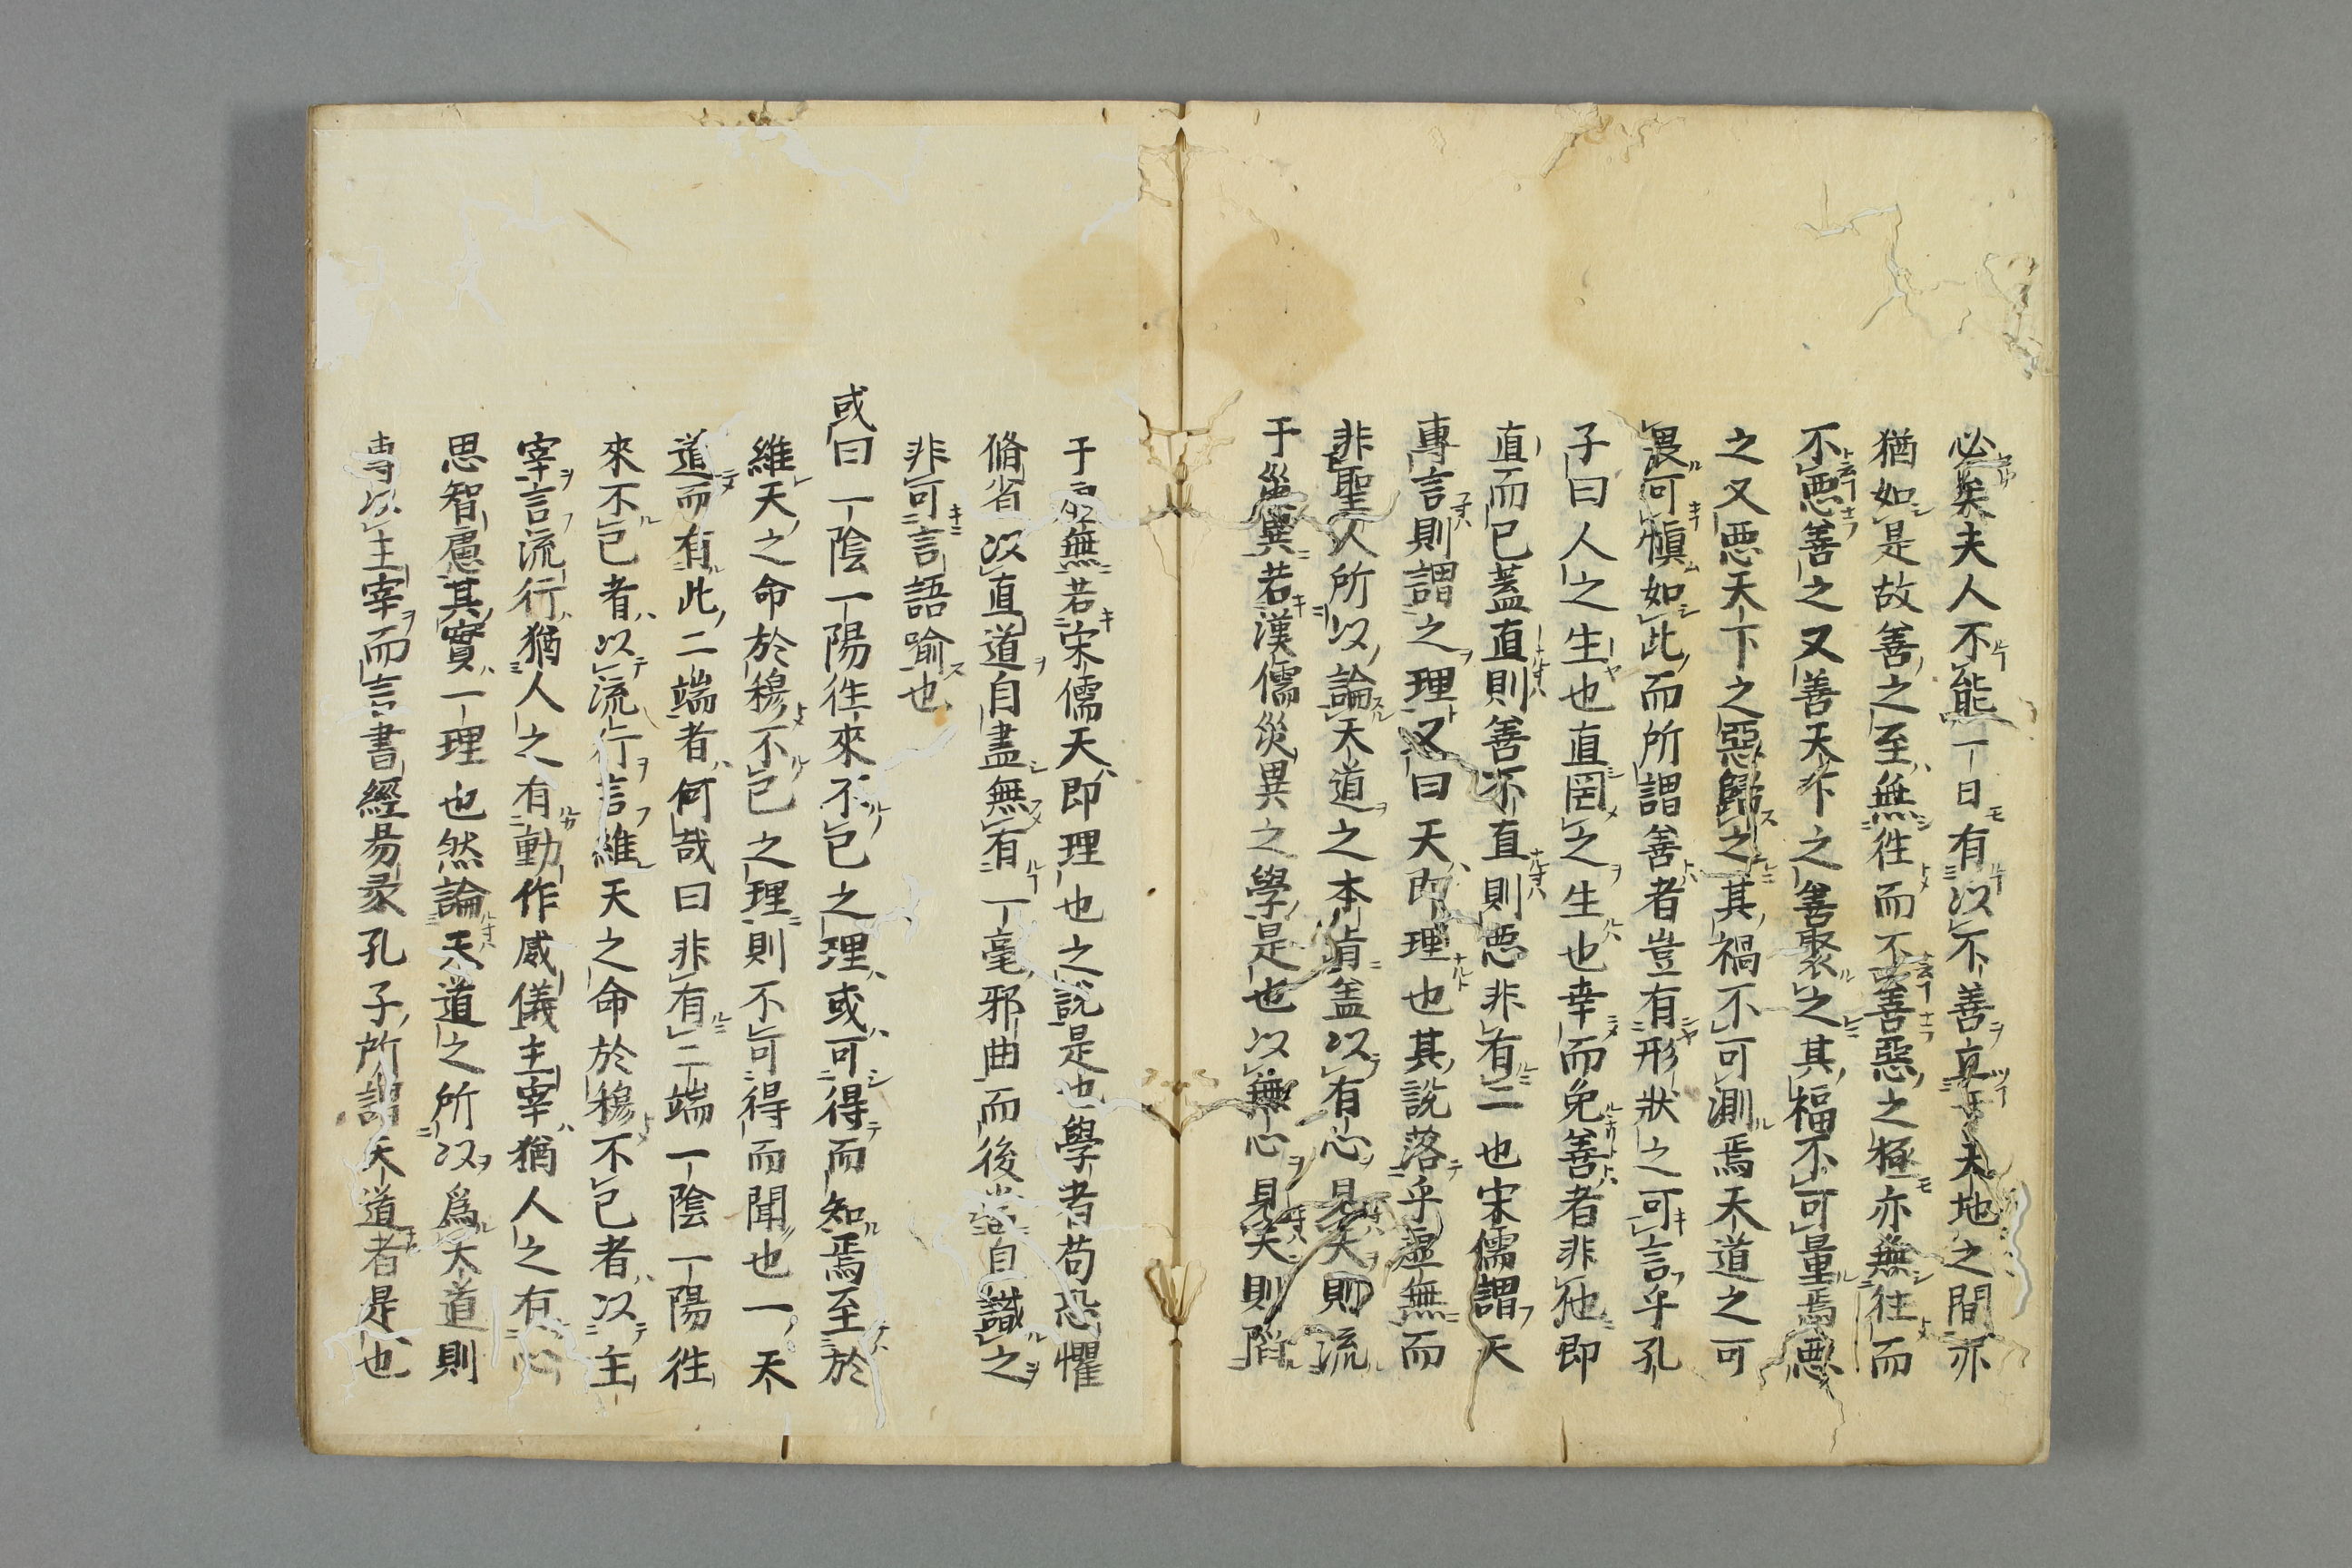 必矣夫人不能一日有以不善立于天地之間亦
猶如是故善之至無往而不善惡之極亦無往而
不惡善之又善天下之善聚之其福不可量焉惡
之又惡天下之惡歸之其禍不可測焉天道之可
畏可愼如此而所謂善者豈有形狀之可言乎孔
子曰人之生也直罔之生也幸而免善者非他即
直而已蓋直則善不直則惡非有二也宋儒謂天
專言則謂之理又曰天即理也其説落乎虛無而
非聖人所以論天道之本旨蓋以有心見天則流
于災異若漢儒災異之學是也以無心見天則陷
于虛無若宋儒天即理也之説是也學者苟恐懼
脩省以直道自盡無有一毫邪曲而後當自識之
非可言語喻也
或曰一陰一陽徃來不已之理或可得而知焉至於
維天之命於穆不已之理則不可得而聞也一天
道而有此二端者何哉曰非有二端一陰一陽徃
來不已者以流行言維天之命於穆不已者以主
宰言流行猶人之有動作威儀主宰猶人之有心
思智慮其實一理也然論天道之所以爲天道則
專以主宰而言書經易彖孔子所謂天道者是也